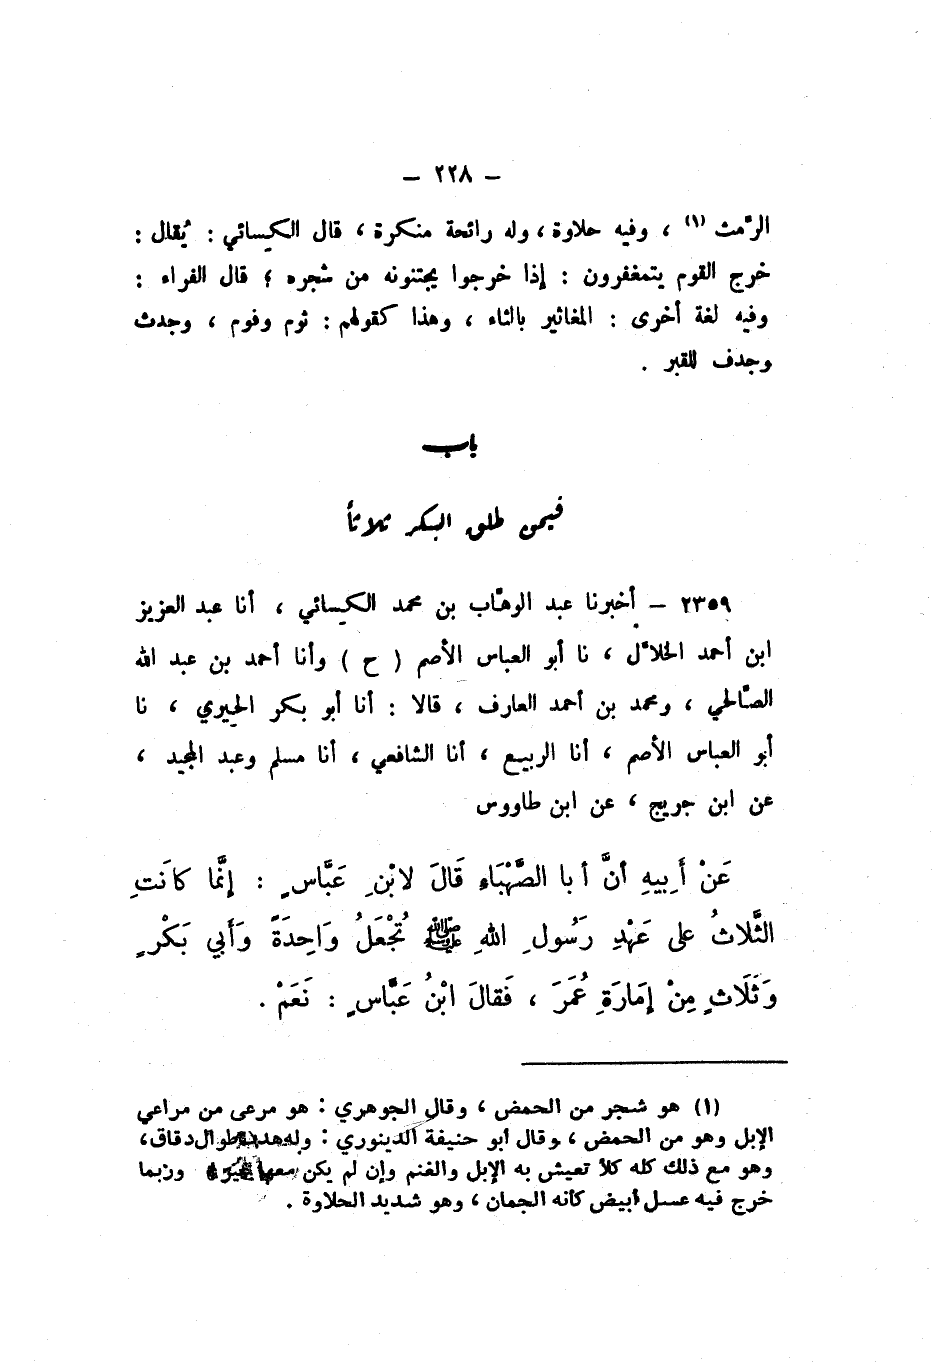 – ٢٢٨ –
الرِّمث (١) ، وفيه حلاوة ، وله رائحة منكرة ، قال الكيسائي : يُقال :
خرج القوم يتمغفرون : إذا خرجوا يجتنونه من شجره ؛ قال الفراء :
وفيه لغة أخرى : المغاثير بالثاء ، وهذا كقولهم : ثوم وفوم ، وجدث
وجدف للقبر .
باب
فيمن طلق البكر ثلاثاً
٢٣٥٩ – أخبرنا عبد الوهَّاب بن محمد الكيسائي ، أنا عبد العزيز
ابن أحمد الخلاَّل ، نا أبو العباس الأصم ( ح ) وأنا أحمد بن عبد الله
الصَّالحي ، ومحمد بن أحمد العارف ، قالا : أنا أبو بكر الحيري ، نا
أبو العباس الأصم ، أنا الربيع ، أنا الشافعي ، أنا مسلم وعبد المجيد ،
عن ابن جريج ، عن ابن طاووس
عَنْ أَبِيهِ أنَّ أبا الصَّهْبَاءِ قَالَ لابْنِ عَبَّاسٍ : إنَّما كانَتِ
الثَّلاثُ على عَهْدِ رَسُولِ اللهِ ﷺ تُجْعَلُ وَاحِدَةً وَأَبي بَكْرٍ
وَثَلَاثٍ مِنْ إمَارَةِ عُمَرَ ، فَقالَ ابْنُ عَبَّاسٍ : نَعَمْ .
(١) هو شجر من الحمض ، وقال الجوهري : هو مرعى من مراعي
الإبل وهو من الحمض ، وقال أبو حنيفة الدينوري : وله هدب طوال دقاق ،
وهو مع ذلك كله كلأ تعيش به الإبل والغنم وإن لم يكن معها غيره وربما
خرج فيه عسل أبيض كأنه الجمان ، وهو شديد الحلاوة .